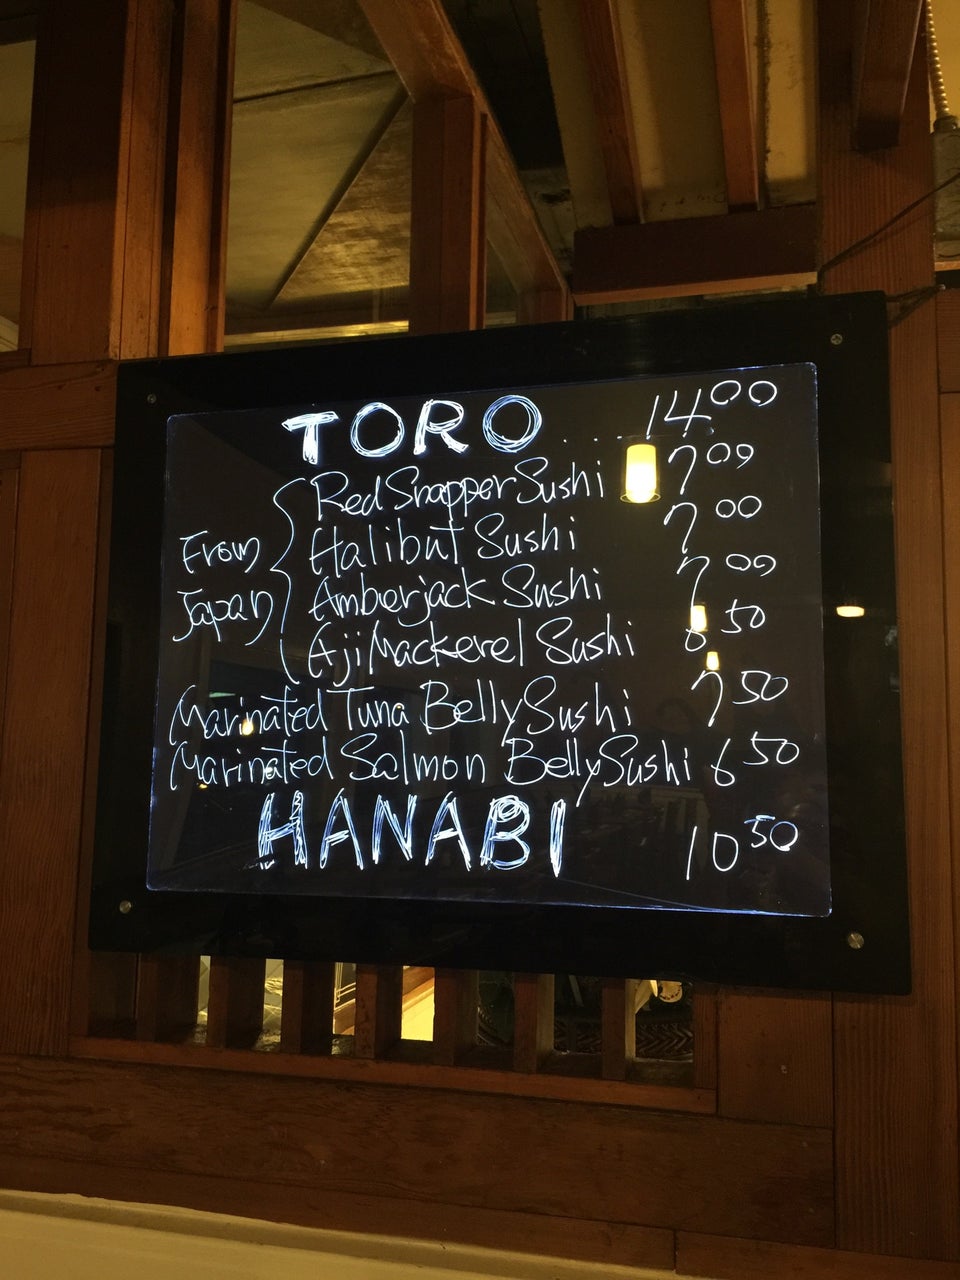 TORO ... 14.00
Red Snapper Sushi 7.00
From Halibut Sushi 7.00
Japan Amberjack Sushi 7.00
Aji Mackerel Sushi 6.50
Marinated Tuna Belly Sushi 7.50
Marinated Salmon Belly Sushi 6.50
HANABI 10.50